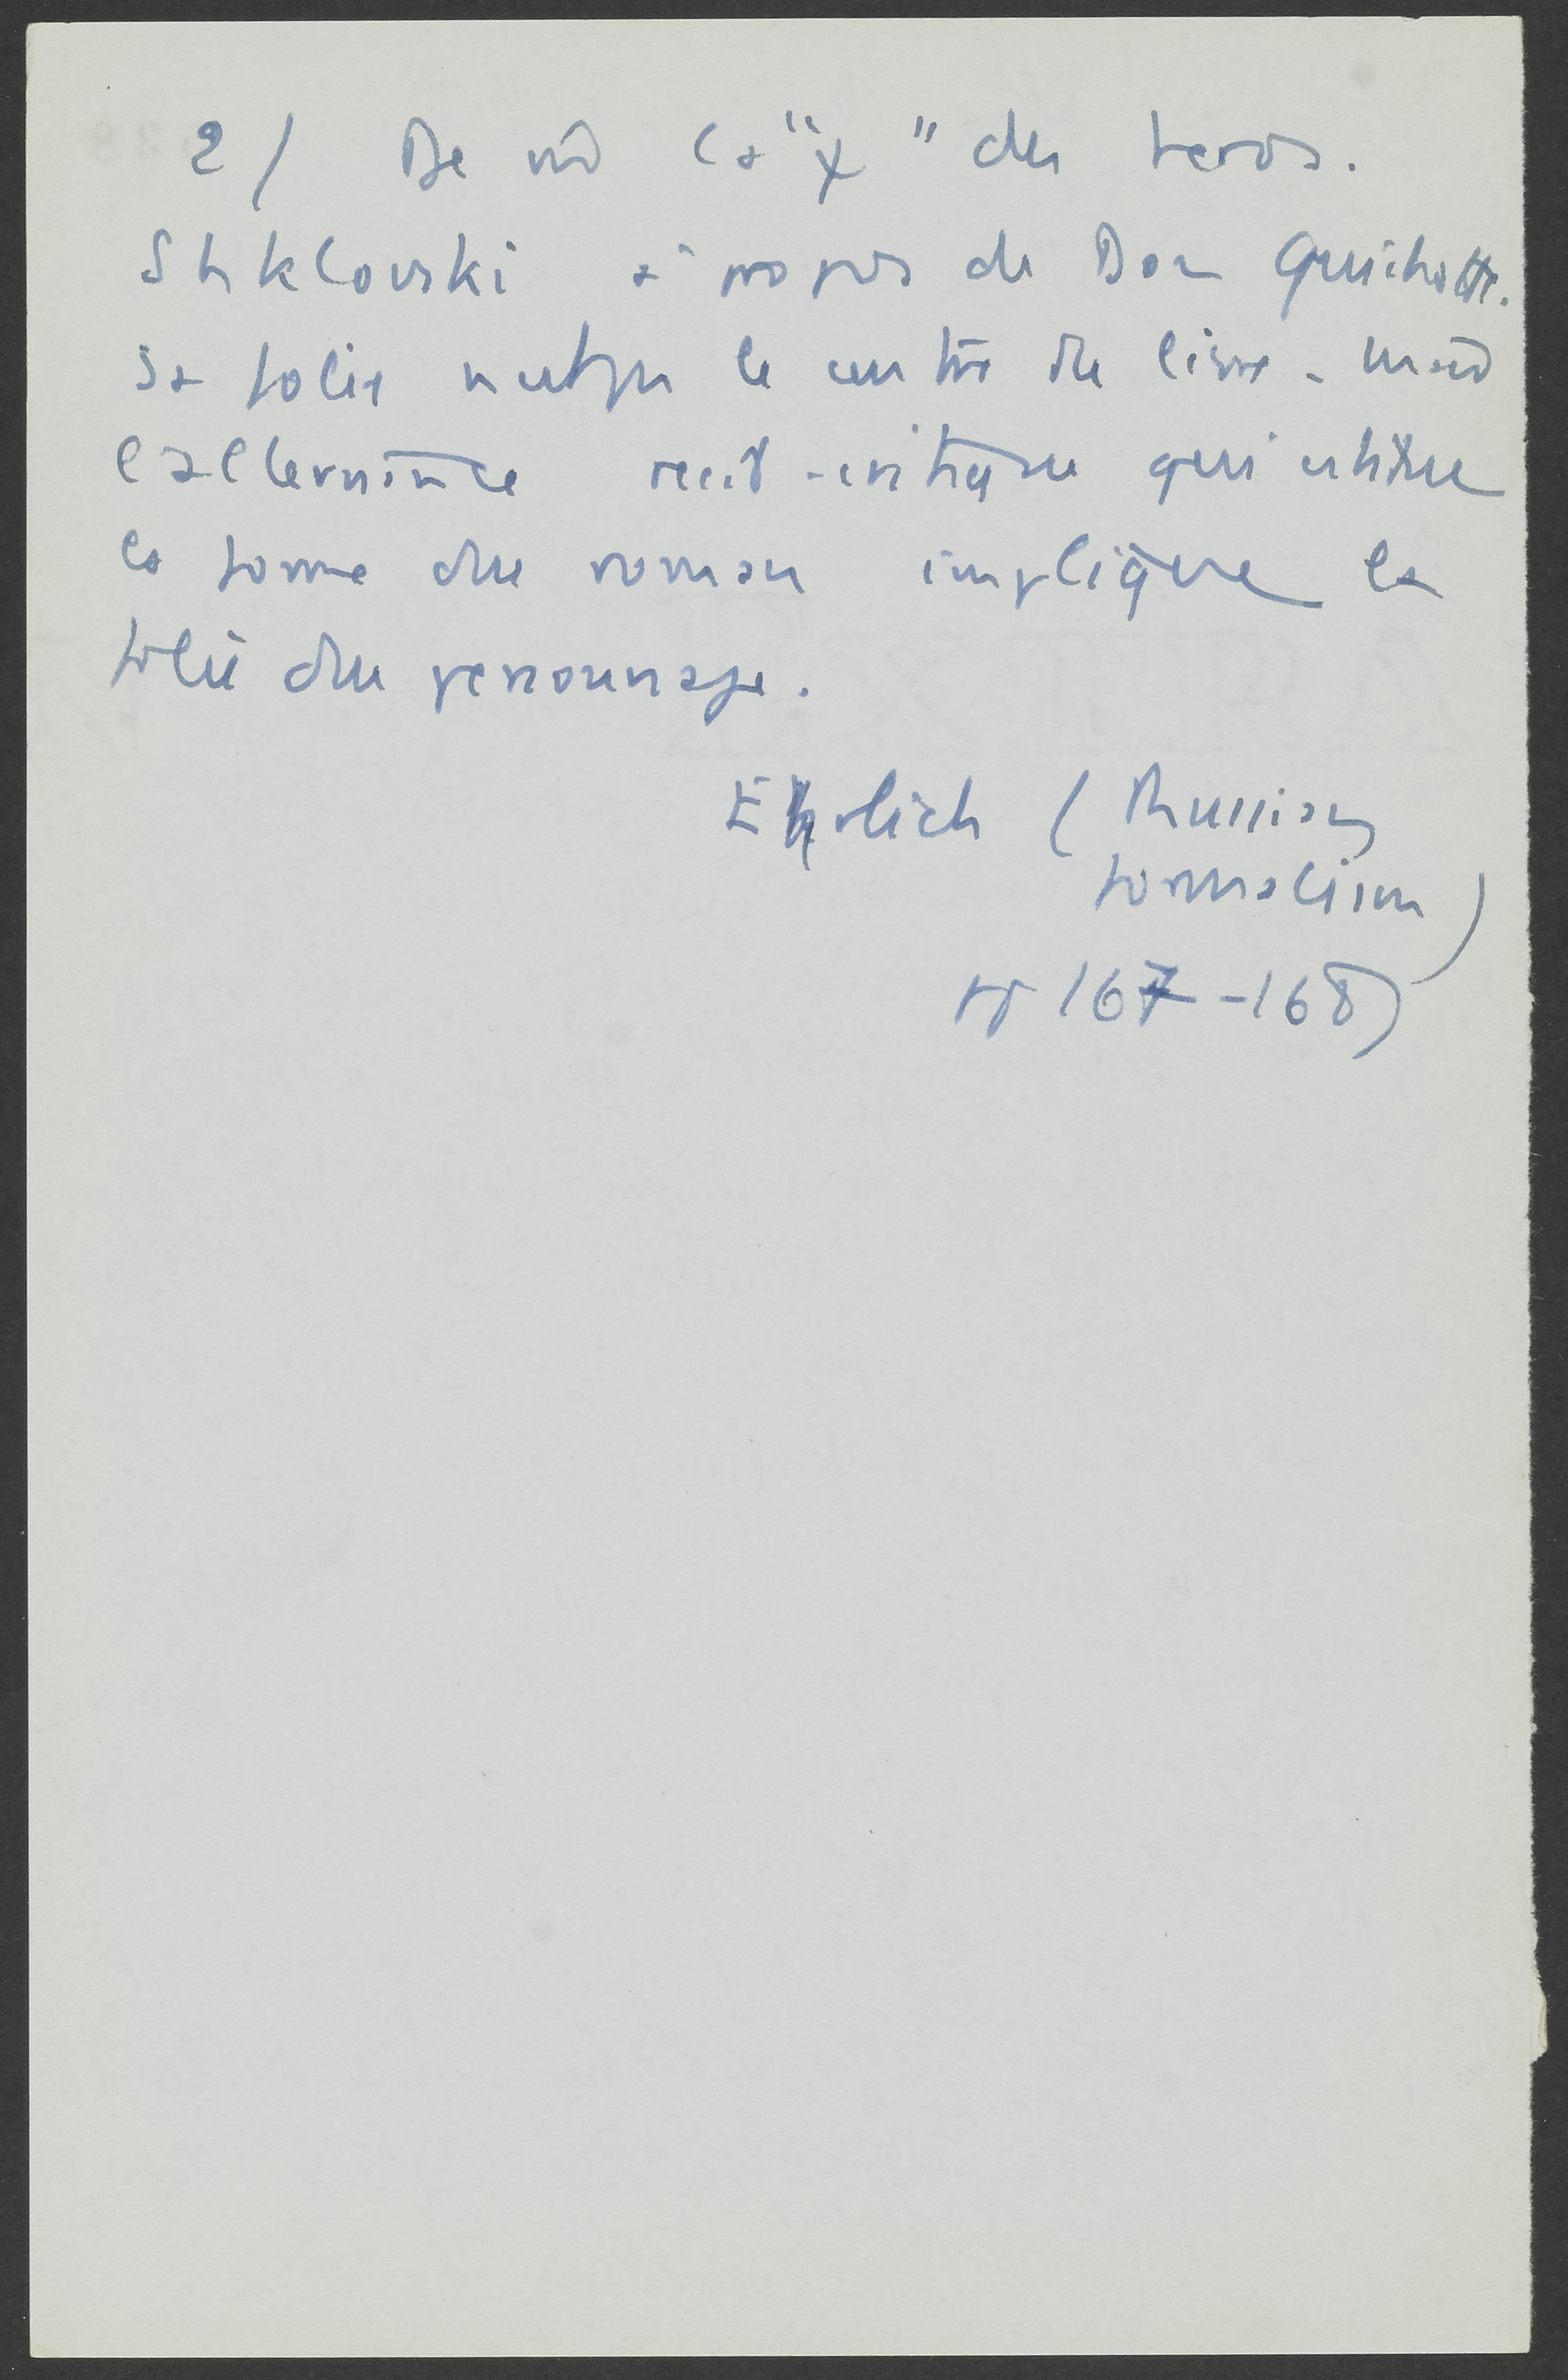 2/ De mê la "ψ" des heros.
Shklovski à propos de Don Quichotte.
Sa folie n'est pas le centre du livre. Mais
l'alternance recit-critique qui est à
la forme du roman implique la
folie du personnage.
Ehrlich (Russian
formalism)
pp 167-168)